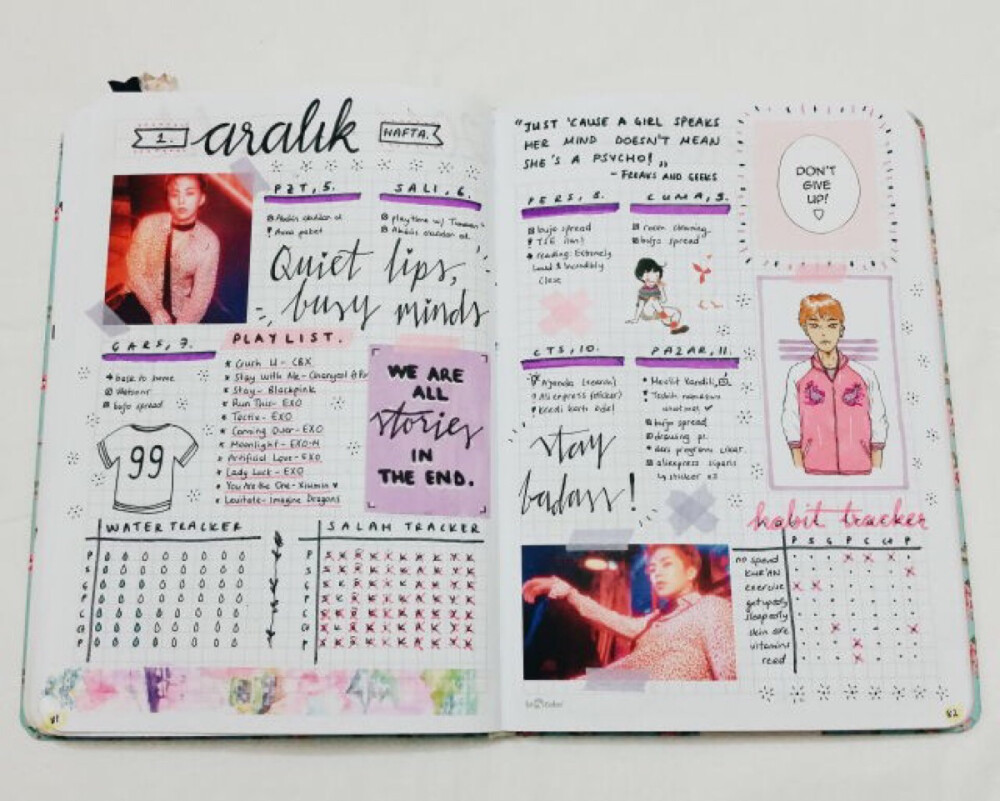 1. aralık HAFTA.
PZT, 5.
SALI, 6.
playtime w/
Quiet lips,
busy minds
ÇARŞ, 7.
back to home
bujo spread
99
PLAYLIST.
Crush U - CBX
Stay with Me - Chanyeol
Stay - Blackpink
Run This - EXO
Tactix - EXO
Coming Over - EXO
Moonlight - EXO-M
Artificial Love - EXO
Lady Luck - EXO
You Are the One - Xiumin ♥
Levitate - Imagine Dragons
WE ARE
ALL
stories
IN
THE END.
WATER TRACKER
P
S
Ç
P
C
Ct
P
SALAH TRACKER
P
S
Ç
P
C
Ct
P
41
"JUST 'CAUSE A GIRL SPEAKS
HER MIND DOESN'T MEAN
SHE'S A PSYCHO!"
- FREAKS AND GEEKS
DON'T
GIVE
UP!
♡
PERS, 8.
bujo spread
reading: Extremely
Loud & Incredibly
Close
CUMA, 9.
room cleaning
bujo spread
CTS, 10.
Aliexpress (sticker)
stay
badass!
PAZAR, 11.
Mevlit Kandili
bujo spread
drawing pr.
ders programı çıkar.
aliexpress sipariş
habit tracker
P S Ç P C Ct P
no spend
KUR'AN
exercise
get up early
sleep early
skin care
vitamins
read
42